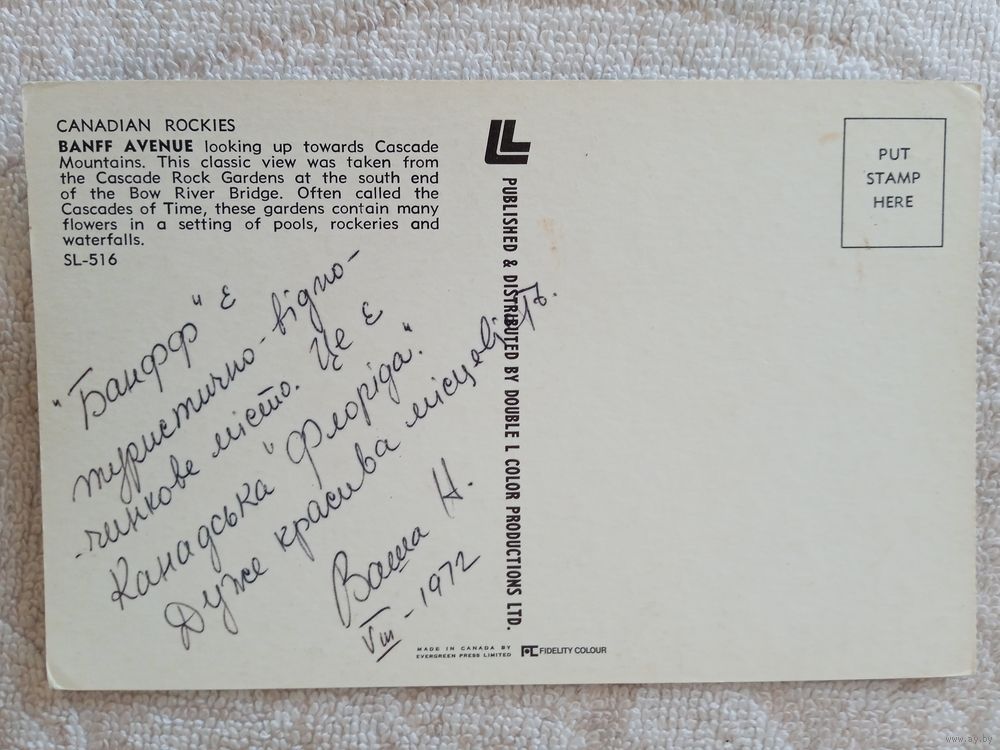 CANADIAN ROCKIES
BANFF AVENUE looking up towards Cascade
Mountains. This classic view was taken from
the Cascade Rock Gardens at the south end
of the Bow River Bridge. Often called the
Cascades of Time, these gardens contain many
flowers in a setting of pools, rockeries and
waterfalls.
SL-516
"Банфф" є
туристично-відпо-
-чинкове місто. Це є
Канадська "Флоріда".
Дуже красива місцевість.
Ваша Н.
VIII-1972
PUBLISHED & DISTRIBUTED BY DOUBLE L COLOR PRODUCTIONS LTD.
PUT
STAMP
HERE
MADE IN CANADA BY
EVERGREEN PRESS LIMITED
FIDELITY COLOUR
www.ay.by